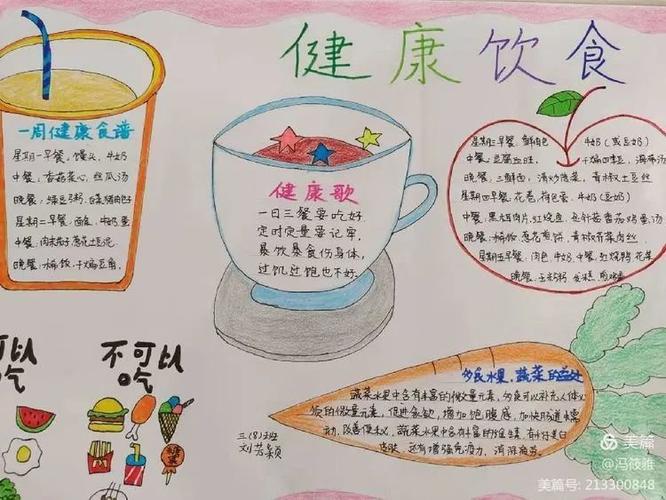 健康饮食
一周健康食谱
星期一早餐，馒头，牛奶
中餐，香菇菜心，丝瓜汤
晚餐，绿豆粥
星期二早餐，面包，牛奶，蛋
中餐
晚餐
健康歌
一日三餐要吃好，
定时定量要记牢，
暴饮暴食伤身体，
过饥过饱也不好。
星期三早餐，鲜肉包 牛奶（或豆奶）
中餐
晚餐，三鲜面，清炒菠菜，青椒土豆丝
星期四早餐，花卷，荷包蛋，牛奶（豆奶）
中餐，黑木耳肉片，红烧鱼，金针菇番茄鸡蛋汤
晚餐，
星期五早餐，肉包，牛奶，中餐，红烧鸭，花菜
晚餐，玉米粥，发糕
可以
吃
不可以
吃
糖果
三（8）班
刘芳颖
多食水果，蔬菜的益处
蔬菜水果中含有丰富的微量元素，多食可以补充人体必
须的微量元素，促进食欲，增加饱腹感，加快肠道蠕
动，改善便秘，蔬菜水果中含有丰富的维生素，有好美白
皮肤，还有增强免疫力，消除疲劳
美篇
@冯筱雎
美篇号: 213300848